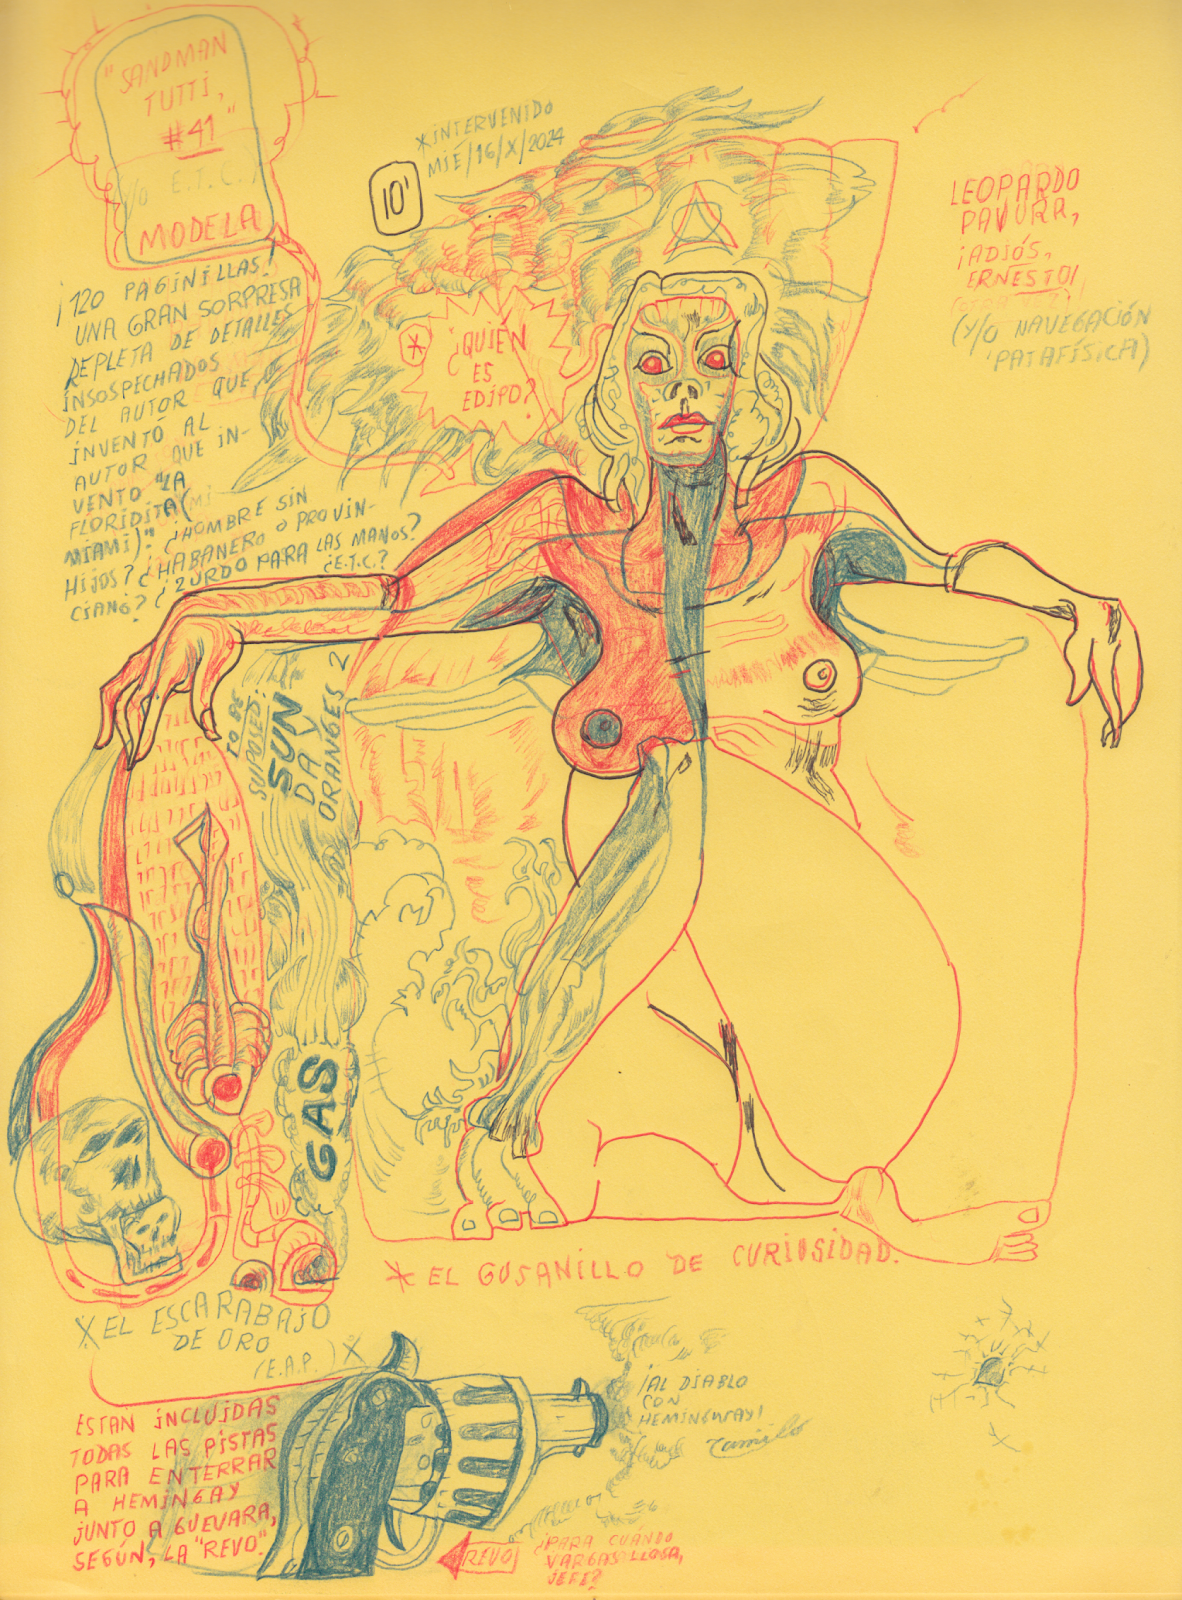 "SANDMAN
TUTTI,
#41"
Y/O E.T.C.,
MODELA
*INTERVENIDO
MIÉ/16/X/2024
10'
LEOPARDO
PAVURA,
¡ADIÓS,
ERNESTO!
(Y/O NAVEGACIÓN
PATAFÍSICA)
¡120 PAGINILLAS!
UNA GRAN SORPRESA
REPLETA DE DETALLES
INSOSPECHADOS
DEL AUTOR QUE,
INVENTÓ AL
AUTOR QUE IN-
VENTO "LA
FLORIDITA(
MIAMI)". ¿HOMBRE SIN
HIJOS? ¿HABANERO O PROVIN-
CIANO? ¿ZURDO PARA LAS MANOS?
¿E.T.C.?
*
¿QUIÉN
ES
EDIPO?
TO BE
SUPOSED:
SUN
DAY
ORANGES 2
GAS
* EL GUSANILLO DE CURIOSIDAD.
X EL ESCARABAJO
DE ORO
(E.A.P.) X
ESTAN INCLUIDAS
TODAS LAS PISTAS
PARA ENTERRAR
A HEMINGAY
JUNTO A GUEVARA,
SEGÚN, LA "REVO".
¡AL DIABLO
CON
HEMINGWAY!
Camilo
REVO
¿PARA CUÁNDO
VARGAS LLOSA,
JEFE?